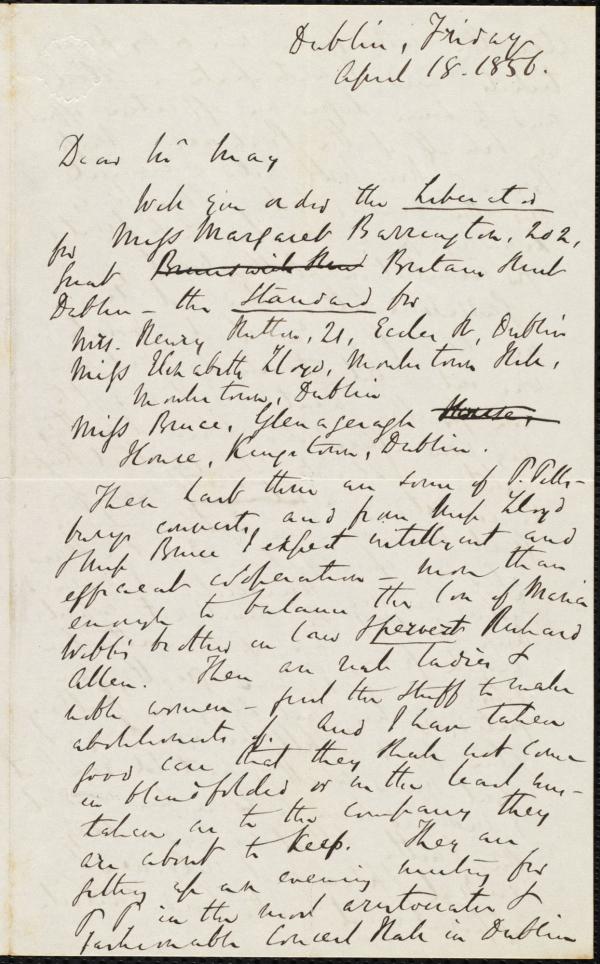 Dublin, Friday
April 18. 1856.
Dear Mr May
Will you order the Liberator
for Miss Margaret Barrington, 202,
Great Brunswick Street Britain Street
Dublin - the Standard for
Mrs. Henry Hutton, 21, Eccles St, Dublin
Miss Elizabeth Lloyd, Monkstown Hill,
Monkstown, Dublin
Miss Bruce, Glenageragh House,
House, Kingstown, Dublin.
These last three are some of P. Pills-
burys converts, and from Miss Lloyd
& Miss Bruce I expect intelligent and
efficient cooperation - more than
enough to balance the loss of Maria
Webb's brother in law & pervert Richard
Allen. These are real ladies &
noble women - just the stuff to make
abolitionists of. And I have taken
good care that they shall not come
in blindfolded or in the least mis-
taken as to the company they
are about to keep. They are
getting up an evening meeting for
P P. in the most aristocratic &
fashionable Concert Hall in Dublin